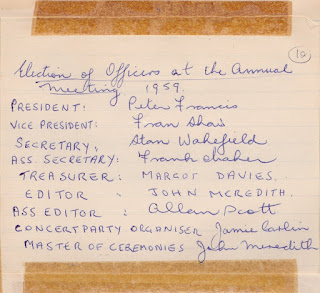 10
Election of Officers at the Annual
Meeting 1959.
PRESIDENT: Peter Francis
VICE PRESIDENT: Fran Shaw
SECRETARY, Stan Wakefield
ASS. SECRETARY: Frank
TREASURER: MARGOT DAVIES.
EDITOR : JOHN MEREDITH.
ASS EDITOR : Allan Scott
CONCERT PARTY ORGANISER Jamie Carlin
MASTER OF CEREMONIES John Meredith